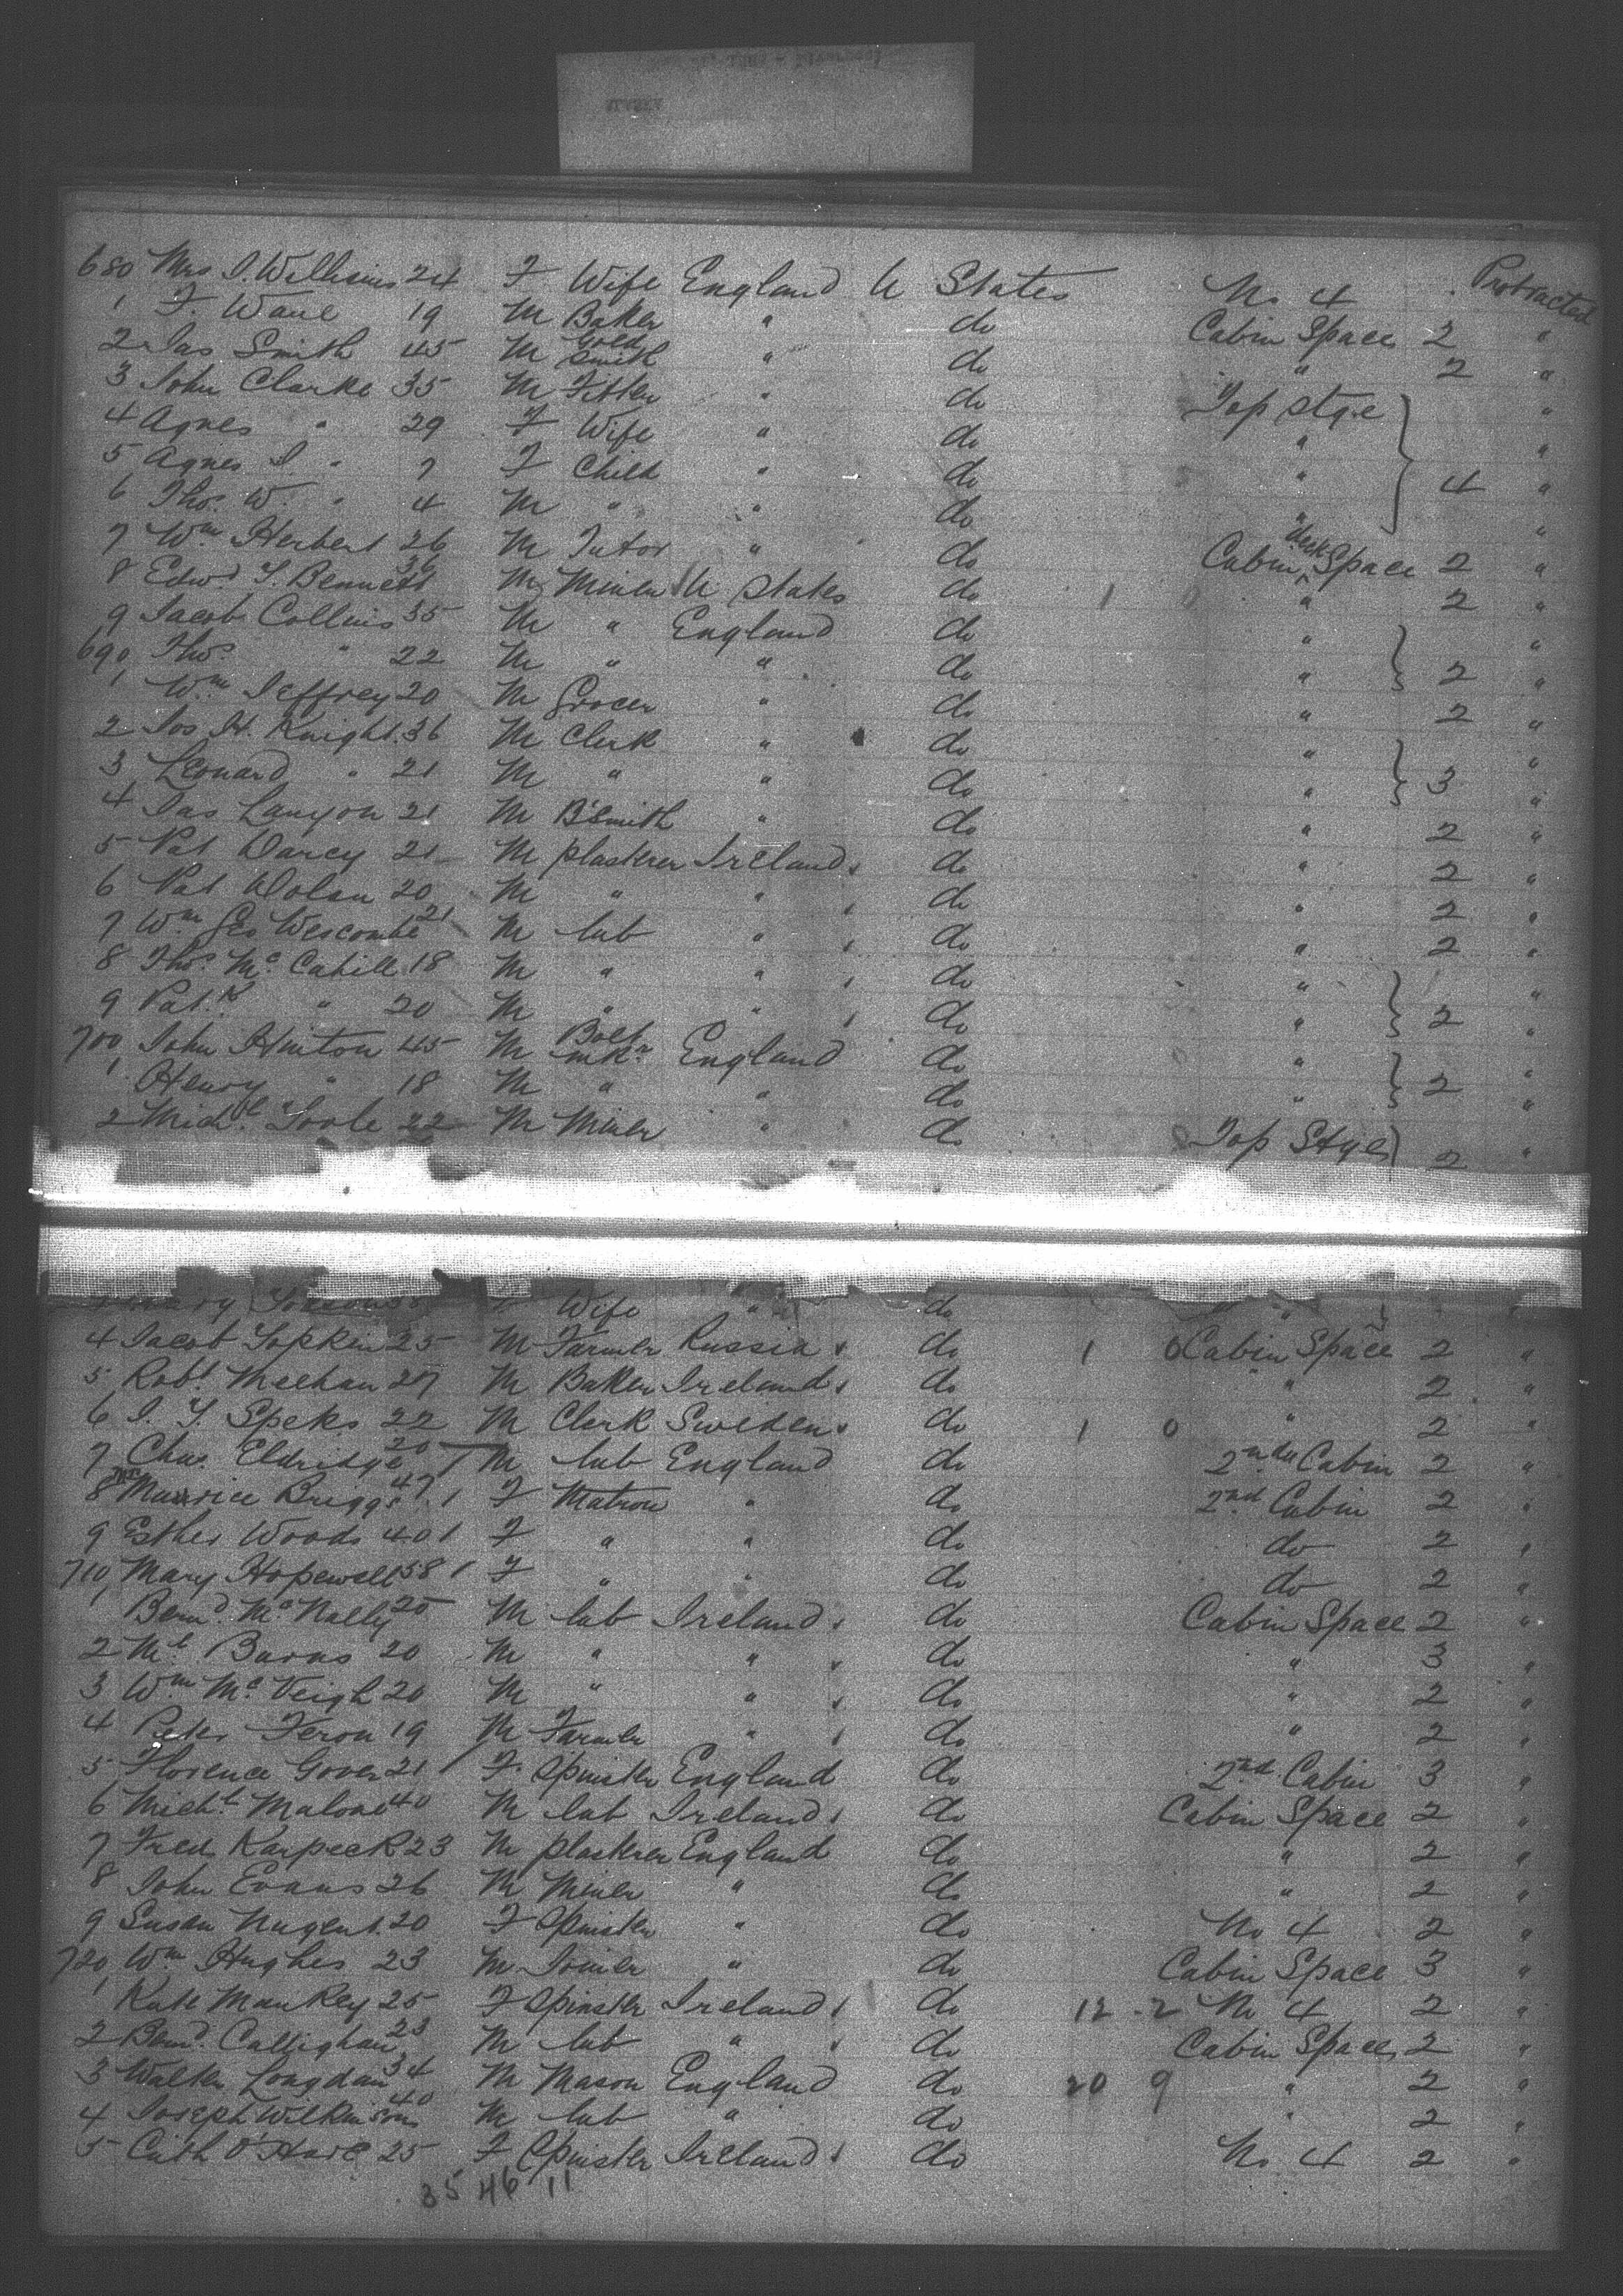 680 Mrs J. Williams 24 F Wife England U States No 4 Protracted
1 F. Wane 19 M Baker " do Cabin Space 2 "
2 Jas Smith 45 M Gold Smith " do " 2 "
3 John Clarke 35 M Fitter " do Top Stge "
4 Agnes " 29 F Wife " do " "
5 Agnes J. " 7 F Child " do " 4 "
6 Thos. W. " 4 M " " do " "
7 Wm Herbert 26 M Tutor " do Cabin deck Space 2 "
8 Edwd T. Bennett 36 M Miner U States do 1 0 " 2 "
9 Jacob Collins 35 M " England do " "
690 Thos. " 22 M " " do " 2 "
1 Wm Jeffrey 20 M Grocer " do " 2 "
2 Jos H. Knight 36 M Clerk " do " "
3 Leonard " 21 M " " do " 3 "
4 Jas Lanyon 21 M B'Smith " do " 2 "
5 Pat Darcy 21 M plasterer Ireland do " 2 "
6 Pat Dolan 20 M " " do " 2 "
7 Wm Geo Wescombe 21 M lab " do " 2 "
8 Thos. Mc Cahill 18 M " " do " "
9 Patk " 20 M " " do " 2 "
700 John Hinton 45 M Bolt mkr England do " "
1 Henry " 18 M " " do " 2 "
2 Michl Toole 22 M Miner " do Top Stge 2 "
Mary Wife " do "
4 Jacob Topkin 25 M Farmer Russia do 1 0 Cabin Space 2 "
5 Robt Meehan 27 M Baker Ireland do " 2 "
6 J. T. Speks 22 M Clerk Sweden do 1 0 " 2 "
7 Chas. Eldridge 20 M lab England do 2nd Cabin 2 "
8 Mrs Maurice Briggs 47 1 F Matron " do 2nd Cabin 2 "
9 Esther Woods 40 1 F " " do do 2 "
710 Mary Hopewell 58 1 F " " do do 2 "
1 Bernd. Mc Nally 25 M lab Ireland do Cabin Space 2 "
2 Ml Burns 20 M " " do " 3 "
3 Wm Mc Veigh 20 M " " do " 2 "
4 Peter Feron 19 M Farmer " do " 2 "
5 Florence Gover 21 1 F Spinster England do 2nd Cabin 3 "
6 Michl Malone 40 M lab Ireland do Cabin Space 2 "
7 Fred Karpeck 23 M plasterer England do " 2 "
8 John Evans 26 M Miner " do " 2 "
9 Susan Nugent 20 F Spinster " do No 4 2 "
720 Wm Hughes 23 M Joiner " do Cabin Space 3 "
1 Kate Mankey 25 F Spinster Ireland do 12 - 2 No 4 2 "
2 Bernd. Callighan 23 M lab " do Cabin Space 2 "
3 Walter Longdan 34 M Mason England do 20 9 " 2 "
4 Joseph Wilkinson 40 M lab " do " 2 "
5 Cath O'Hare 25 F Spinster Ireland do No 4 2 "
35 46 11